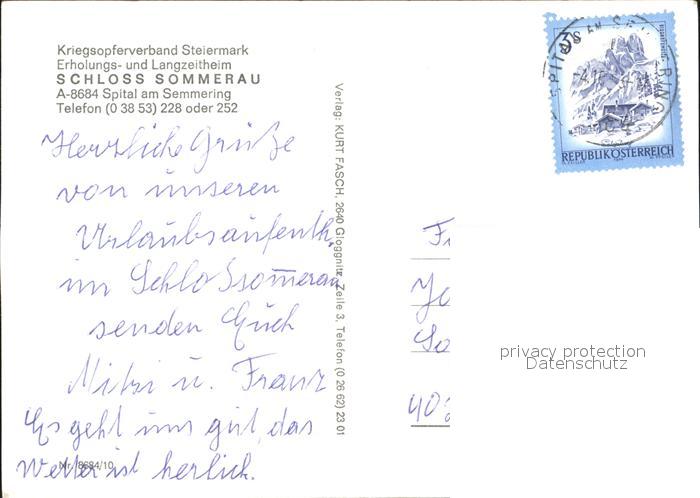 Kriegsopferverband Steiermark
Erholungs- und Langzeitheim
SCHLOSS SOMMERAU
A-8684 Spital am Semmering
Telefon (0 38 53) 228 oder 252
Herzliche Grüße
von unseren
Urlaubsaufenth.
im Schloßsom̅erau
senden Euch
Mitzi u. Franz
Es geht uns gut, das
Wetter ist herlich.
Nr. 8684/10
Verlag: KURT FASCH, 2640 Gloggnitz, Zeile 3, Telefon (0 26 62) 23 01
REPUBLIK ÖSTERREICH
Fr
Jo
40
privacy protection
Datenschutz